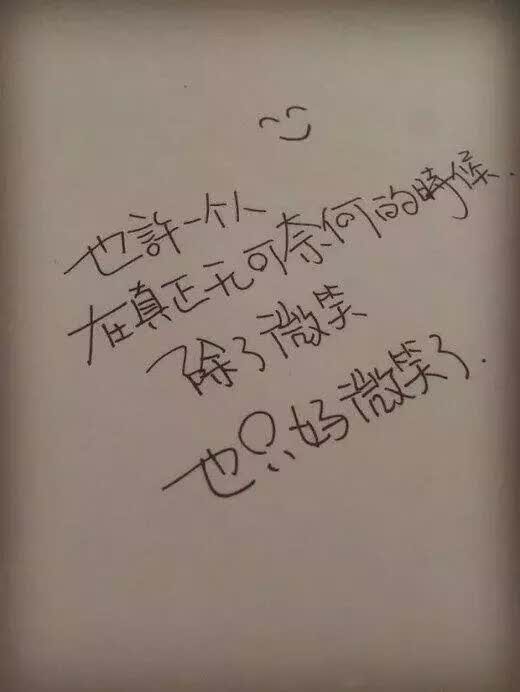 也許一个人
在真正无可奈何的時候.
除了微笑
也只好微笑了.